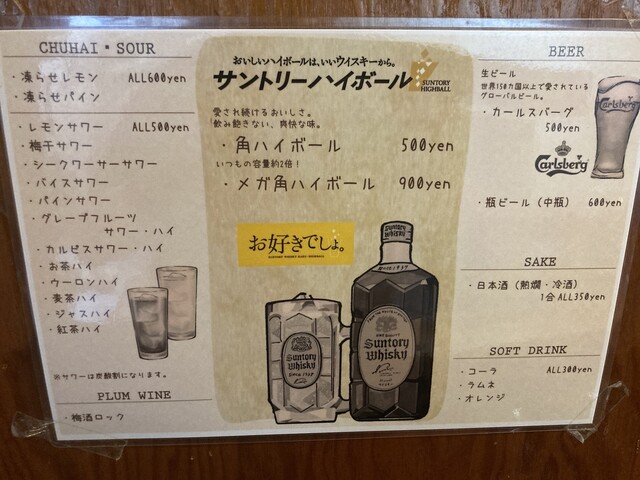 CHUHAI・SOUR
・凍らせレモン ALL600yen
・凍らせパイン
・レモンサワー ALL500yen
・梅干サワー
・シークワーサーサワー
・バイスサワー
・パインサワー
・グレープフルーツ
サワー・ハイ
・カルピスサワー・ハイ
・お茶ハイ
・ウーロンハイ
・麦茶ハイ
・ジャスハイ
・紅茶ハイ
※サワーは炭酸割になります。
PLUM WINE
・梅酒ロック
おいしいハイボールは、いいウイスキーから。
サントリーハイボール
SUNTORY
HIGHBALL
愛され続けるおいしさ。
飲み飽きない、爽快な味。
・角ハイボール 500yen
いつもの容量約2倍!
・メガ角ハイボール 900yen
お好きでしょ。
Suntory
Whisky
SINCE 1937
Suntory
Whisky
Suntory
Whisky
BEER
生ビール
世界150カ国以上で愛されている
グローバルビール。
・カールスバーグ
500yen
Carlsberg
Carlsberg
・瓶ビール(中瓶) 600yen
SAKE
・日本酒(熱燗・冷酒)
1合ALL350yen
SOFT DRINK
・コーラ ALL300yen
・ラムネ
・オレンジ